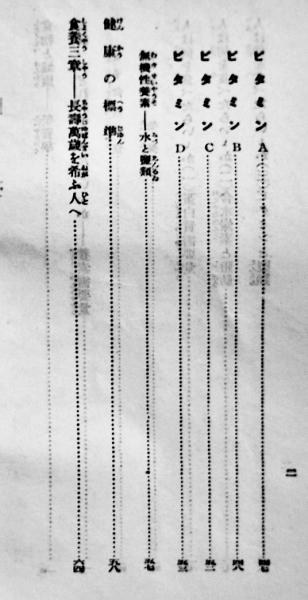 ビタミンA……四七
ビタミンB……四八
ビタミンC……五二
ビタミンD……五三
無機性養素——水と鹽類……五七
健康の標準……五八
食養三章——長壽萬歳を希ふ人へ……六四
二